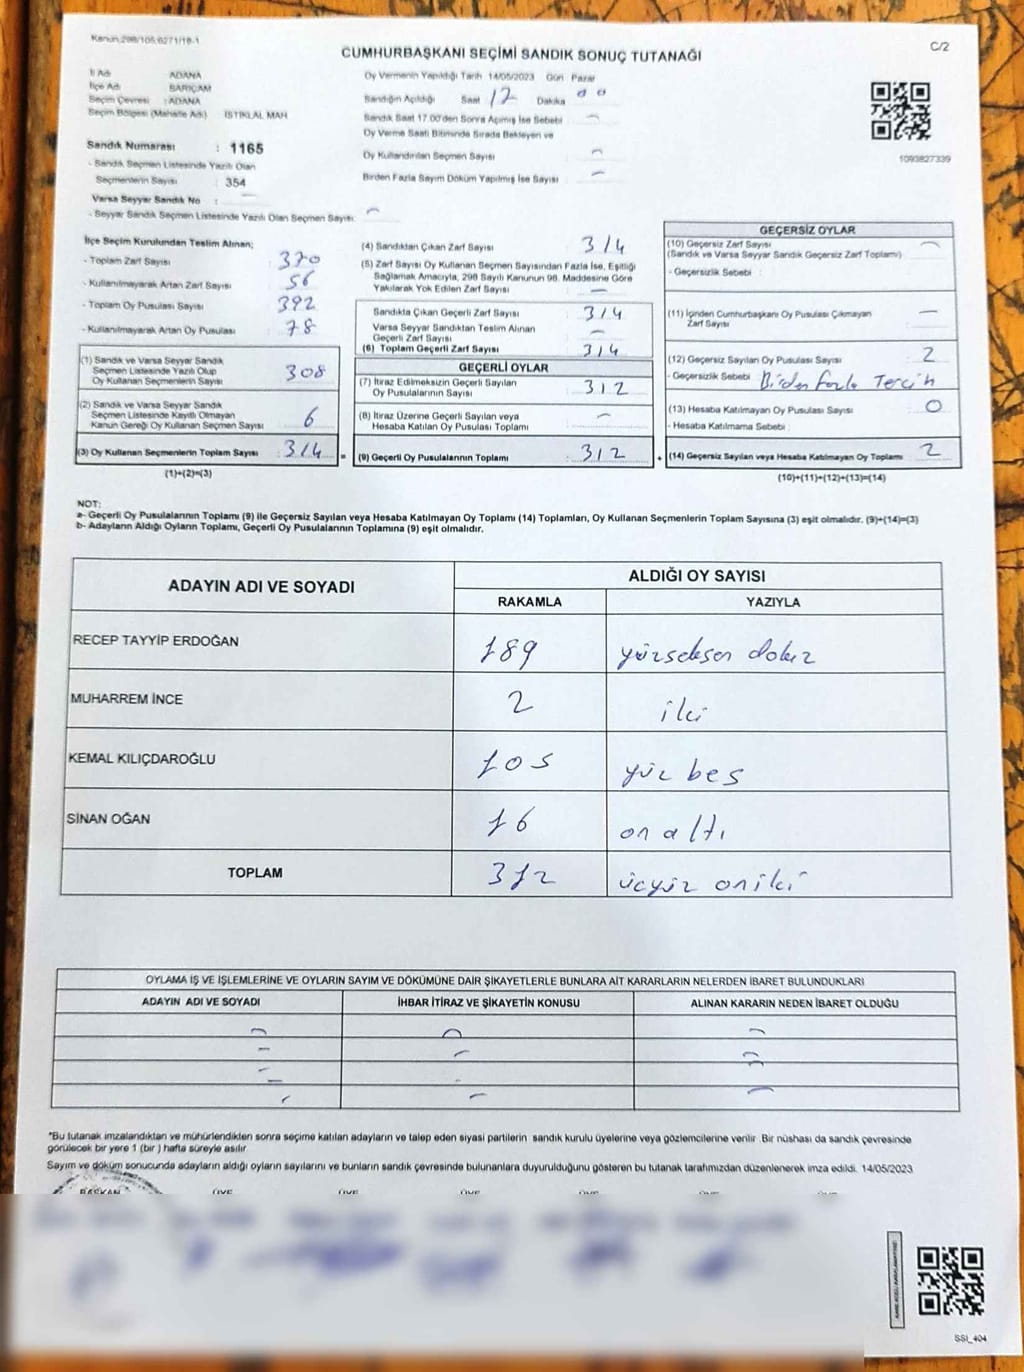 Kanun:298/105,6271/18-1
C/2
CUMHURBAŞKANI SEÇİMİ SANDIK SONUÇ TUTANAĞI
İl Adı : ADANA
İlçe Adı : SARIÇAM
Seçim Çevresi : ADANA
Seçim Bölgesi (Mahalle Adı) : İSTİKLAL MAH
Sandık Numarası : 1165
- Sandık Seçmen Listesinde Yazılı Olan
Seçmenlerin Sayısı : 354
Varsa Seyyar Sandık No :
- Seyyar Sandık Seçmen Listesinde Yazılı Olan Seçmen Sayısı :
Oy Vermenin Yapıldığı Tarih 14/05/2023 Gün Pazar
Sandığın Açıldığı Saat 17 Dakika 00
Sandık Saat 17.00'den Sonra Açılmış İse Sebebi :
Oy Verme Saati Bitiminde Sırada Bekleyen ve
Oy Kullandırılan Seçmen Sayısı :
Birden Fazla Sayım Döküm Yapılmış İse Sayısı :
1093827339
İlçe Seçim Kurulundan Teslim Alınan;
- Toplam Zarf Sayısı : 370
- Kullanılmayarak Artan Zarf Sayısı : 56
- Toplam Oy Pusulası Sayısı : 392
- Kullanılmayarak Artan Oy Pusulası : 78
(1) Sandık ve Varsa Seyyar Sandık
Seçmen Listesinde Yazılı Olup
Oy Kullanan Seçmenlerin Sayısı : 308
(2) Sandık ve Varsa Seyyar Sandık
Seçmen Listesinde Kayıtlı Olmayan
Kanun Gereği Oy Kullanan Seçmen Sayısı : 6
(3) Oy Kullanan Seçmenlerin Toplam Sayısı : 314 =
(1)+(2)=(3)
(4) Sandıktan Çıkan Zarf Sayısı : 314
(5) Zarf Sayısı Oy Kullanan Seçmen Sayısından Fazla İse, Eşitliği
Sağlamak Amacıyla, 298 Sayılı Kanunun 98. Maddesine Göre
Yakılarak Yok Edilen Zarf Sayısı :
Sandıkta Çıkan Geçerli Zarf Sayısı : 314
Varsa Seyyar Sandıktan Teslim Alınan
Geçerli Zarf Sayısı :
(6) Toplam Geçerli Zarf Sayısı : 314
GEÇERLİ OYLAR
(7) İtiraz Edilmeksizin Geçerli Sayılan
Oy Pusulalarının Sayısı : 312
(8) İtiraz Üzerine Geçerli Sayılan veya
Hesaba Katılan Oy Pusulası Toplamı :
(9) Geçerli Oy Pusulalarının Toplamı : 312 +
GEÇERSİZ OYLAR
(10) Geçersiz Zarf Sayısı :
(Sandık ve Varsa Seyyar Sandık Geçersiz Zarf Toplamı)
- Geçersizlik Sebebi :
(11) İçinden Cumhurbaşkanı Oy Pusulası Çıkmayan
Zarf Sayısı :
(12) Geçersiz Sayılan Oy Pusulası Sayısı : 2
- Geçersizlik Sebebi : Birden fazla Tercih
(13) Hesaba Katılmayan Oy Pusulası Sayısı : 0
- Hesaba Katılmama Sebebi :
(14) Geçersiz Sayılan veya Hesaba Katılmayan Oy Toplamı : 2
(10)+(11)+(12)+(13)=(14)
NOT:
a- Geçerli Oy Pusulalarının Toplamı (9) ile Geçersiz Sayılan veya Hesaba Katılmayan Oy Toplamı (14) Toplamları, Oy Kullanan Seçmenlerin Toplam Sayısına (3) eşit olmalıdır. (9)+(14)=(3)
b- Adayların Aldığı Oyların Toplamı, Geçerli Oy Pusulalarının Toplamına (9) eşit olmalıdır.
ADAYIN ADI VE SOYADI ALDIĞI OY SAYISI
RAKAMLA YAZIYLA
RECEP TAYYİP ERDOĞAN 189 yüzseksen dokuz
MUHARREM İNCE 2 iki
KEMAL KILIÇDAROĞLU 105 yüz beş
SİNAN OĞAN 16 on altı
TOPLAM 312 üçyüz oniki
OYLAMA İŞ VE İŞLEMLERİNE VE OYLARIN SAYIM VE DÖKÜMÜNE DAİR ŞİKAYETLERLE BUNLARA AİT KARARLARIN NELERDEN İBARET BULUNDUKLARI
ADAYIN ADI VE SOYADI İHBAR İTİRAZ VE ŞİKAYETİN KONUSU ALINAN KARARIN NEDEN İBARET OLDUĞU
*Bu tutanak imzalandıktan ve mühürlendikten sonra seçime katılan adayların ve talep eden siyasi partilerin sandık kurulu üyelerine veya gözlemcilerine verilir. Bir nüshası da sandık çevresinde
görülecek bir yere 1 (bir ) hafta süreyle asılır.
Sayım ve döküm sonucunda adayların aldığı oyların sayılarını ve bunların sandık çevresinde bulunanlara duyurulduğunu gösteren bu tutanak tarafımızdan düzenlenerek imza edildi. 14/05/2023
BAŞKAN ÜYE ÜYE ÜYE ÜYE ÜYE ÜYE
SSİ_404